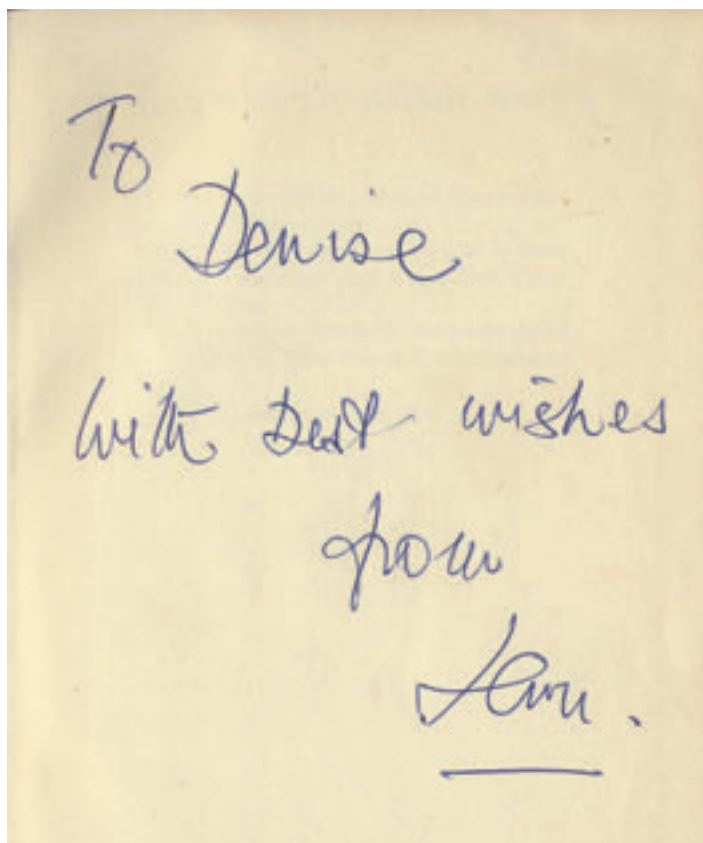 To
Denise
with best wishes
from